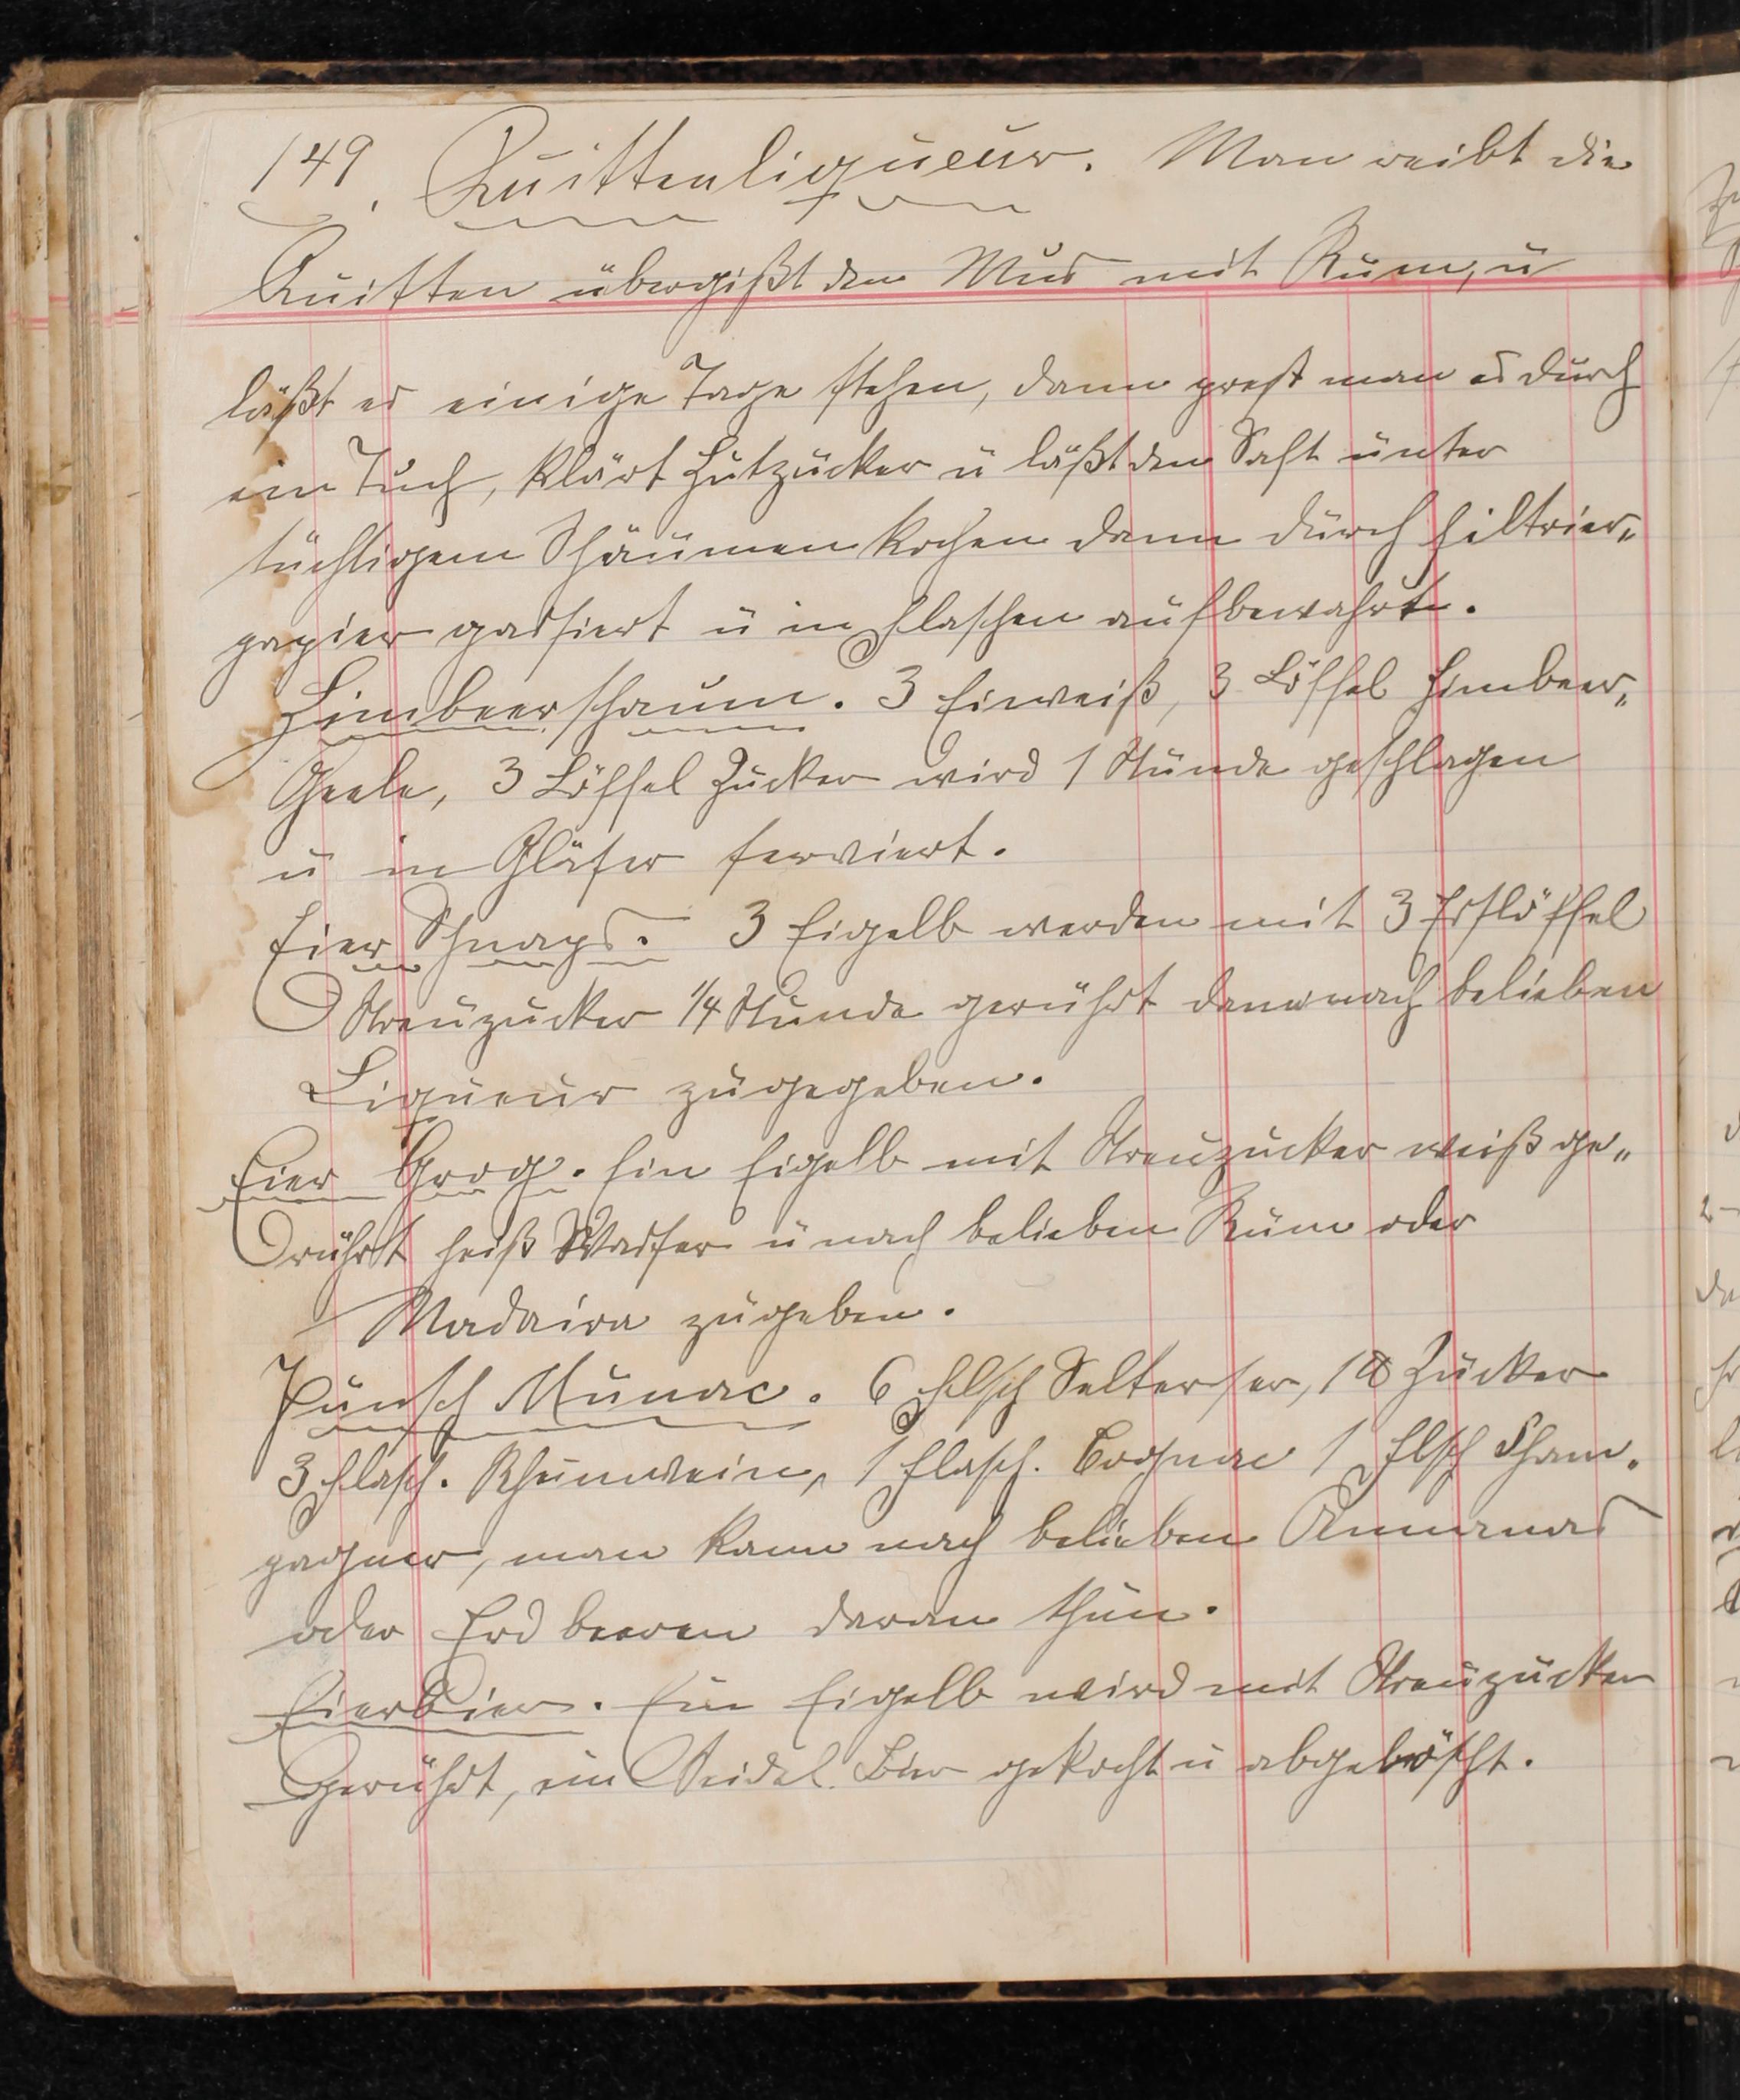 149. Quittenliqueur. Man reibt die
Quitten übergißt den Mus mit Rum, u
läßt es einige Tage stehen, dann prest man es durch
ein Tuch, klärt Hutzucker u läßt den Saft unter
tüchtigem Schäumen kochen dann durch Filtrier„
papier passiert u in Flaschen aufbewahrt.
Himbeerschaum. 3 Eiweiß, 3 Löffel Himbeer„
Geele, 3 Löffel Zucker wird 1 Stunde geschlagen
u in Gläser serviert.
Eier Schnaps. 3 Eigelb werden mit 3 Esslöffel
Streuzucker 1/4 Stunde gerührt dann nach belieben
Liqueur zugegeben.
Eier Grog. Ein Eigelb mit Streuzucker weiß ge„
rührt heiß Wasser u nach belieben Rum oder
Madaira zugeben.
Punsch 6 Flsch Selterser, 1 ℔ Zucker
3 Flasch. Rheinwein, 1 Flasch. Cognac 1 Flsch Cham.
pagner, man kann nach belieben Annanas
oder Erdbeeren daran thun.
Eierbier. Ein Eigelb wird mit Streuzucker
gerührt, ein Seidel Bier gekocht u abgelöscht.